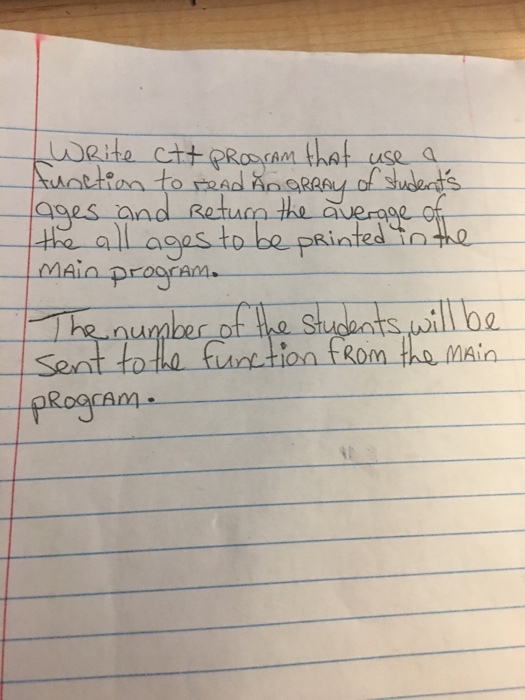 Write C++ program that use a
function to read An array of student's
ages and Return the average of
the all ages to be printed in the
main program.
The number of the students will be
sent to the function from the main
program.